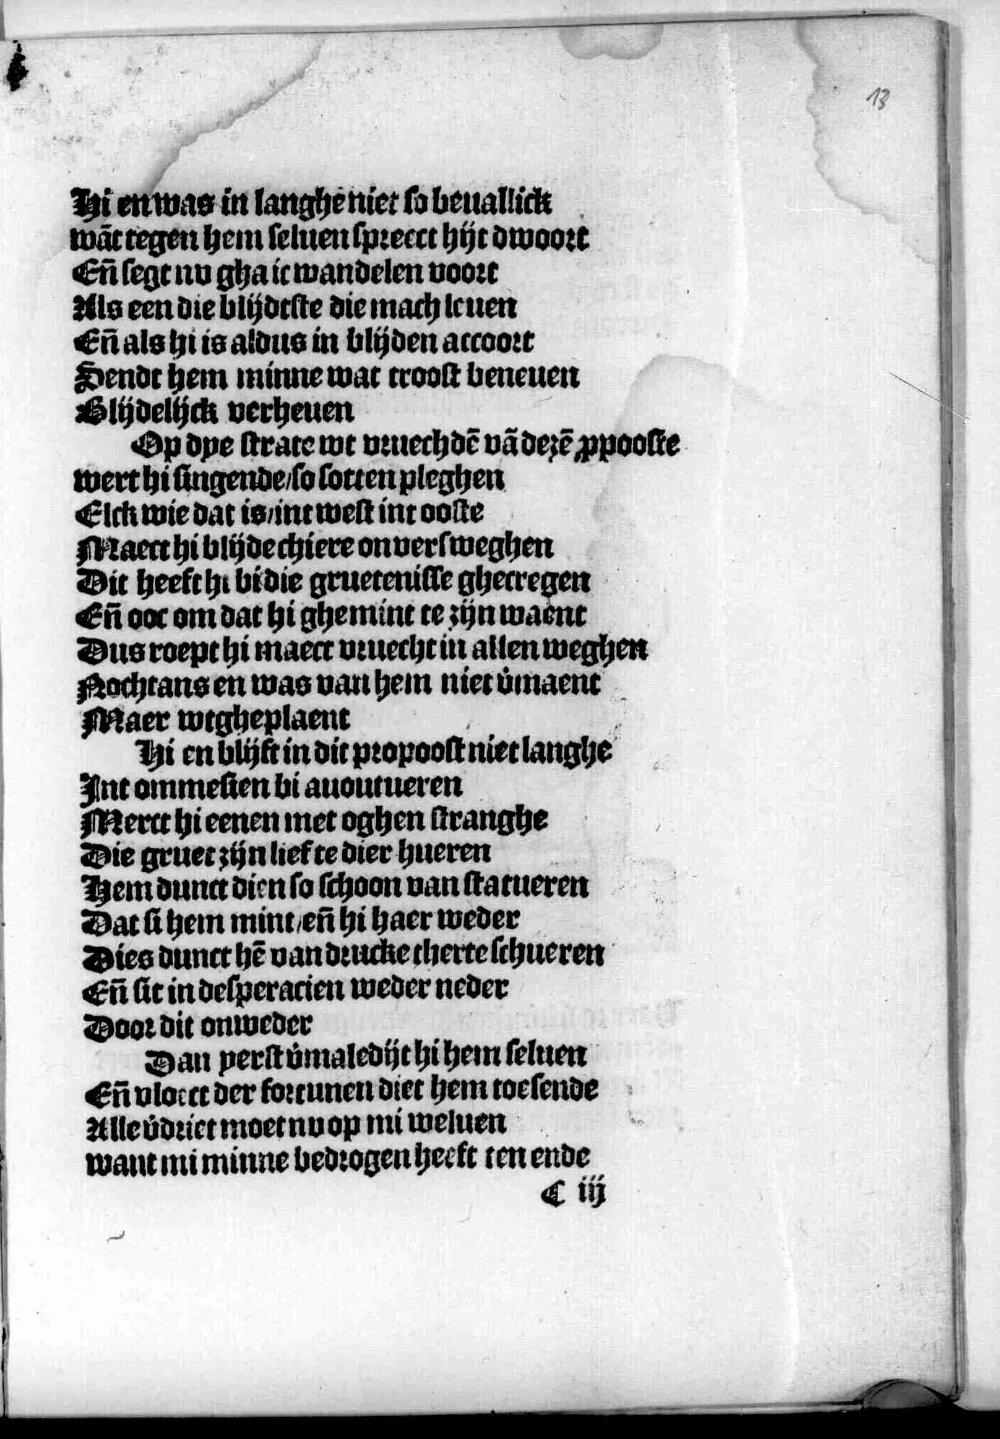 13
Hi en was in langhe niet so beuallick
wãt tegen hem seluen sprecct hijt dwoort
Eñ segt nv gha ic wandelen voort
Als een die blijdtste die mach leuen
Eñ als hi is aldus in blijden accoort
Sendt hem minne wat troost beneuen
Blijdelijck verheuen
Op dye strate wt vruechdẽ vã dezẽ ꝓpooste
wert hi singende/so sotten pleghen
Elck wie dat is/int west int ooste
Maect hi blijde chiere onversweghen
Dit heeft hi bi die gruetenisse ghecregen
Eñ ooc om dat hi ghemint te zijn waent
Dus roept hi maect vruecht in allen weghen
Nochtans en was van hem niet v̄maent
Maer wtgheplaent
Hi en blijft in dit propoost niet langhe
Int ommesien bi auoutueren
Merct hi eenen met oghen stranghe
Die gruet zijn lief te dier hueren
Hem dunct dien so schoon van statueren
Dat si hem mint/eñ hi haer weder
Dies dunct hẽ van drucke therte schueren
Eñ sit in desperacien weder neder
Door dit onweder
Dan yerst v̄maledijt hi hem seluen
Eñ vloect der fortunen diet hem toesende
Alle v̄driet moet nv op mi weluen
want mi minne bedrogen heeft ten ende
C iij